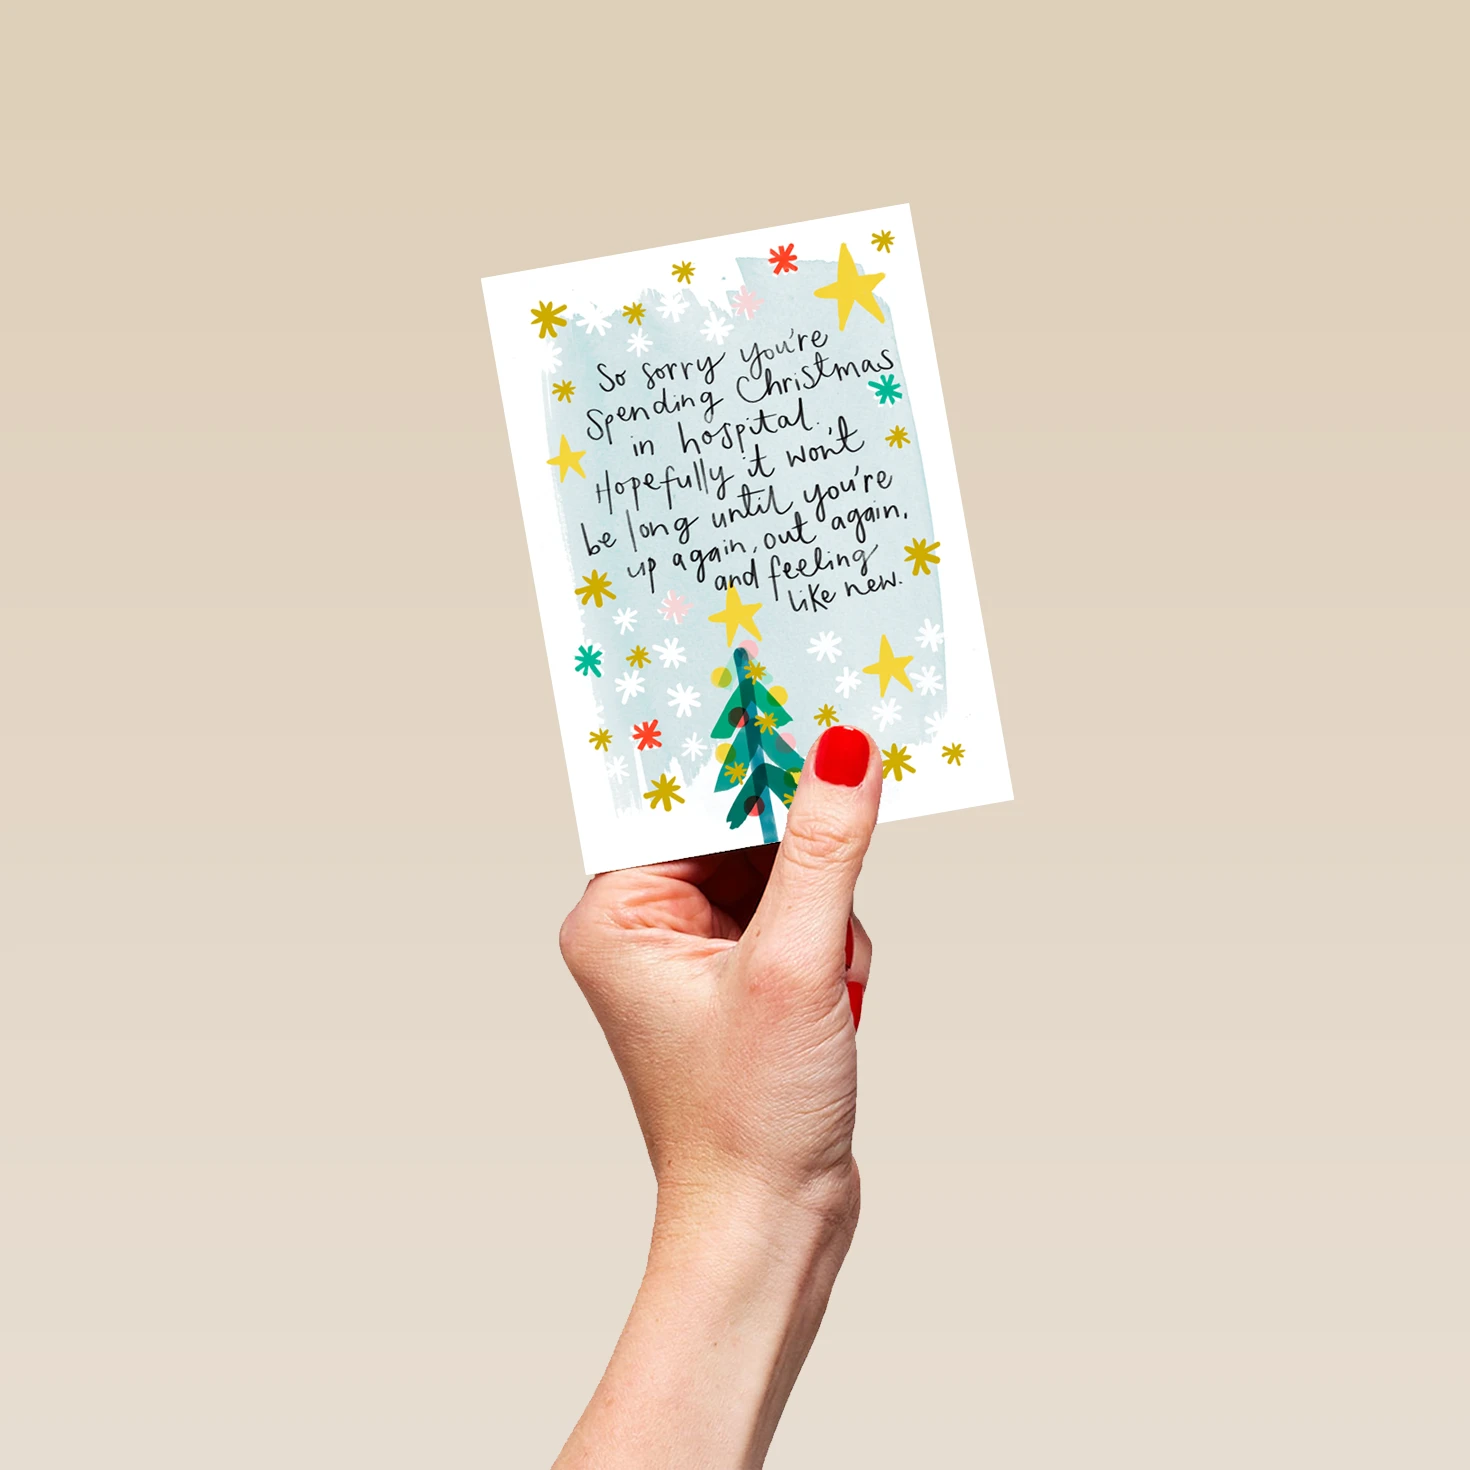 So sorry you're
Spending Christmas
in hospital.
Hopefully it won't
be long until you're
up again, out again,
and feeling
like new.